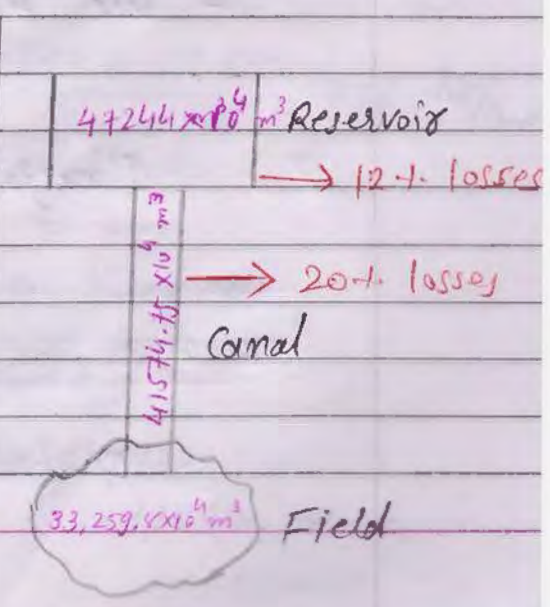 47244 x10⁴ m³ Reservoir
→ 12 % losses
41574.75 x10⁴ m³
→ 20 % losses
Canal
33,259.8x10⁴ m³ Field